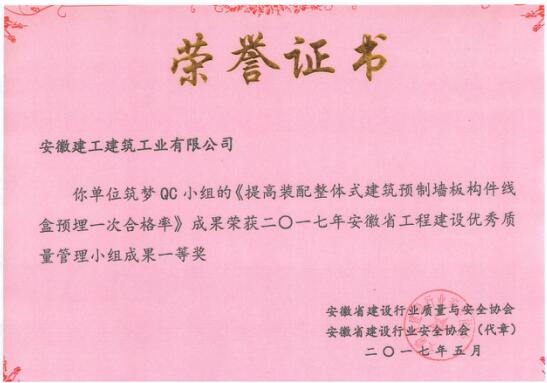 荣誉证书
安徽建工建筑工业有限公司
你单位筑梦QC小组的《提高装配整体式建筑预制墙板构件线
盒预埋一次合格率》成果荣获二〇一七年安徽省工程建设优秀质
量管理小组成果一等奖
安徽省建设行业质量与安全协会
安徽省建设行业安全协会（代章）
二〇一七年五月